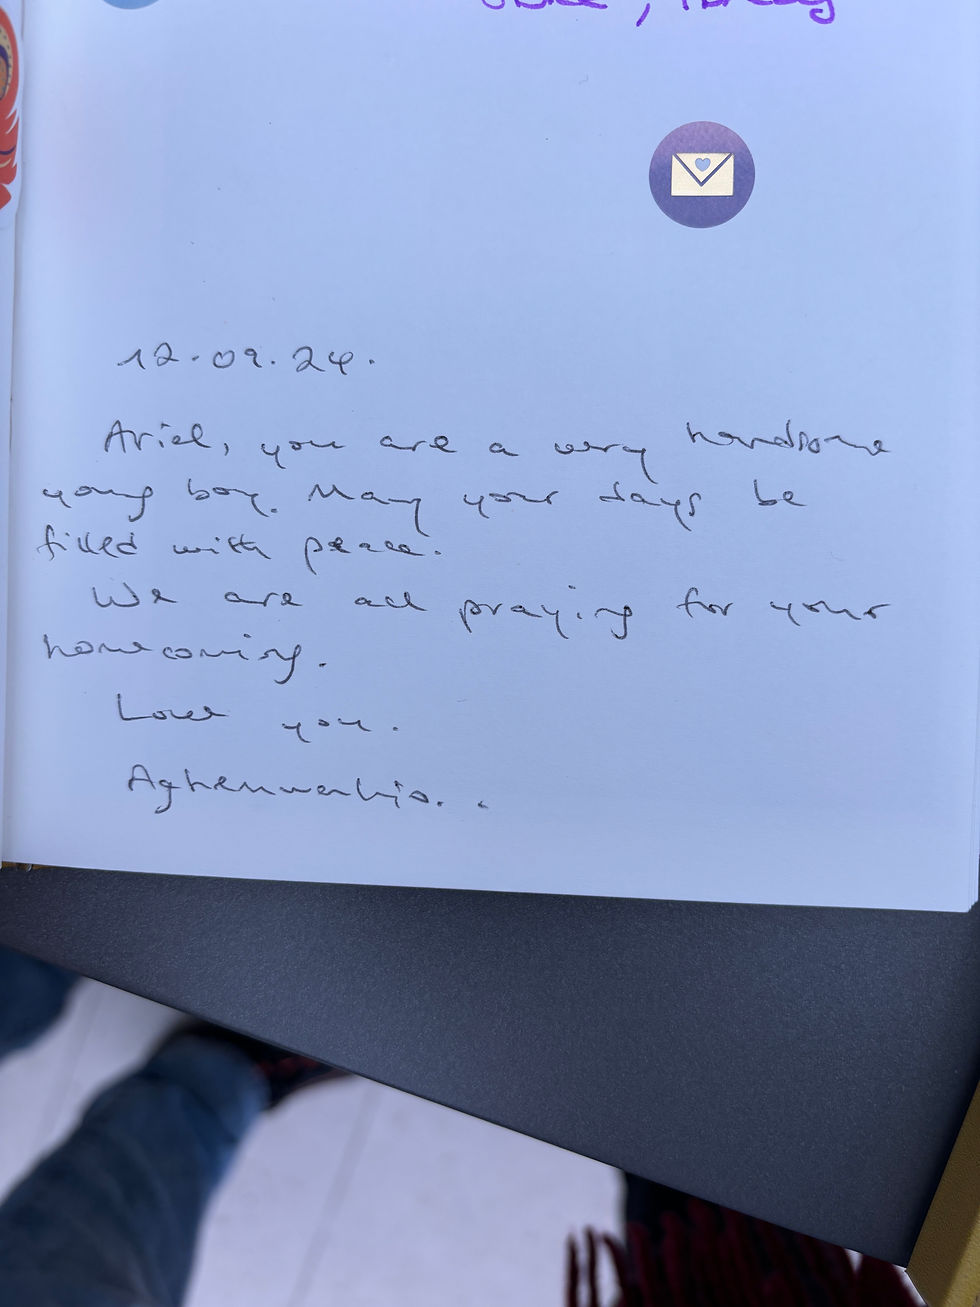 12.09.24.
Ariel, you are a very handsome
young boy. May your days be
filled with peace.
We are all praying for your
homecoming.
Love you.